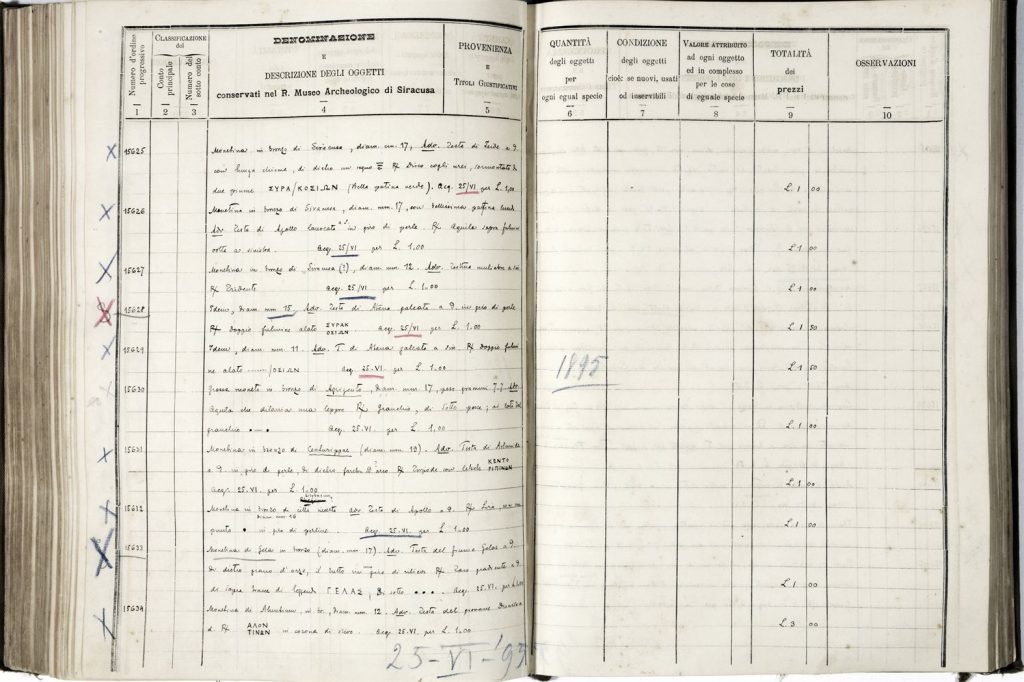 Numero d'ordine progressivo
CLASSIFICAZIONE del
Conto principale
Numero del sotto conto
DENOMINAZIONE
E
DESCRIZIONE DEGLI OGGETTI
conservati nel R. Museo Archeologico di Siracusa
PROVENIENZA
E
TITOLI GIUSTIFICATIVI
1 2 3 4 5
15625 Monetina in bronzo di Siracusa, diam. mm. 17, Adv. Testa di
con lunga chioma, di dietro un R/ Disco cogli urei, sormontato da
due piume ΣΥΡΑ/ΚΟΣΙΩΝ (Bella patina verde). Acq. 25/VI per L. 1,00
15626 Monetina in bronzo di Siracusa, diam. mm. 17, con bellissima patina
Adv. Testa di Apollo laureato a s. in giro di perle. R/ Aquila sopra fulmine
volta a sinistra. Acq. 25/VI per L. 1.00
15627 Monetina in bronzo di Siracusa (?), diam. mm. 12. Adv. Testina muliebre a sin.
R/ Tridente Acq. 25/VI per L. 1.00
15628 Idem, diam. mm 15, Adv. Testa di Atena galeata a d. in giro di perle
R/ doppio fulmine alato ΣΥΡΑΚ ΟΣΙΩΝ. Acq. 25/VI per L. 1.00
15629 Idem, diam. mm. 11. Adv. T. di Atena galeata a sin. R/ Doppio fulmi
ne alato /ΟΣΙΩΝ Acq. 25.VI. per L. 1.00
15630 Grossa moneta in bronzo di Agrigento, diam. mm. 17, peso grammi 7.7 Adv.
Aquila che dilania una lepre R/ Granchio, di sotto pesce; ai lati del
granchio • — • Acq. 25.VI. per L. 1,00
15631 Monetina in bronzo di Centuripae (diam. mm. 19). Adv. Testa di Artemide
a d. in giro di perle, di dietro R/ Tripode con ΚΕΝΤΟ ΡΙΠΙΝΩΝ
Acq. 25.VI. per L. 1.00
15632 Monetina in bronzo di diam. mm 16 Adv. Testa di Apollo a d. R/ Lira, con un
punto • in giro di perline. Acq. 25.VI. per L. 1.00
15633 Monetina di Gelas in bronzo (diam. mm. 17). Adv. Testa del fiume Gelas a d.
di dietro grano d'orzo, il tutto in giro di rilievo R/ Toro gradiente a d.
di sopra tracce di leggenda ΓΕΛΑΣ, di sotto • • • • Acq. 25.VI. per
15634 Monetina di Aluntium, in br., diam. mm. 12. Adv. Testa del giovane
d. R/ ΑΛΟΝ ΤΙΝΩΝ in corona di ulivo. Acq. 25.VI. per L. 1.00
25-VI-'95
QUANTITÀ
degli oggetti
per
ogni egual specie
CONDIZIONE
degli oggetti
cioè: se nuovi, usati
od inservibili
VALORE ATTRIBUITO
ad ogni oggetto
ed in complesso
per le cose
di eguale specie
TOTALITÀ
dei
prezzi
OSSERVAZIONI
6 7 8 9 10
L. 1 00
L. 1 00
L. 1 00
L. 1 50
1895
L. 1 50
L. 1 00
L. 1 00
L. 1 00
L. 1 00
L. 3 00